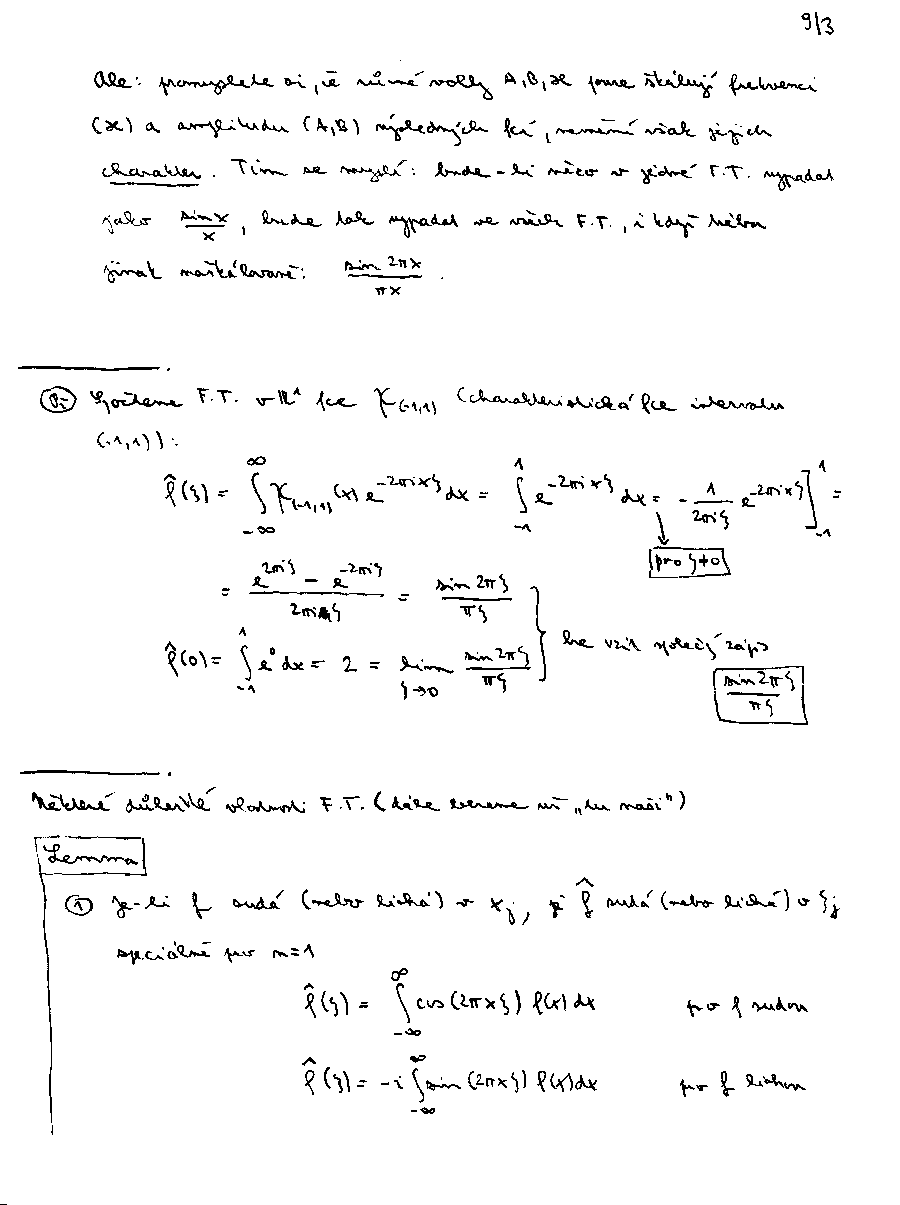 9/3
Ale: promyslete si, že různé volby A, B, ϰ pouze škálují frekvenci
(ϰ) a amplitudu (A, B) výsledných fcí, nemění však jejich
charakter. Tím se myslí: bude-li něco v jedné F.T. vypadat
jako sin x / x, bude tak vypadat ve všech F.T., i když třeba
jinak naškálované: sin 2πx / πx.
Př Spočteme F.T. v ℝ¹ fce χ(-1,1) (charakteristická fce intervalu
(-1,1)):
f̂(ξ) = ∫_{-∞}^{∞} χ(-1,1)(x) e^{-2πixξ} dx = ∫_{-1}^{1} e^{-2πixξ} dx = - 1/(2πiξ) e^{-2πixξ} ]_{-1}^{1} =
pro ξ≠0
= (e^{2πiξ} - e^{-2πiξ}) / (2πiξ) = sin 2πξ / πξ
f̂(0) = ∫_{-1}^{1} e⁰ dx = 2 = lim_{ξ→0} sin 2πξ / πξ } lze vzít společný zápis
sin 2πξ / πξ
Některé důležité vlastnosti F.T. (dále bereme už „tu naši")
Lemma
① Je-li f sudá (nebo lichá) v x_j, je f̂ sudá (nebo lichá) v ξ_j
speciálně pro n=1
f̂(ξ) = ∫_{-∞}^{∞} cos(2πxξ) f(x) dx pro f sudou
f̂(ξ) = -i ∫_{-∞}^{∞} sin(2πxξ) f(x) dx pro f lichou